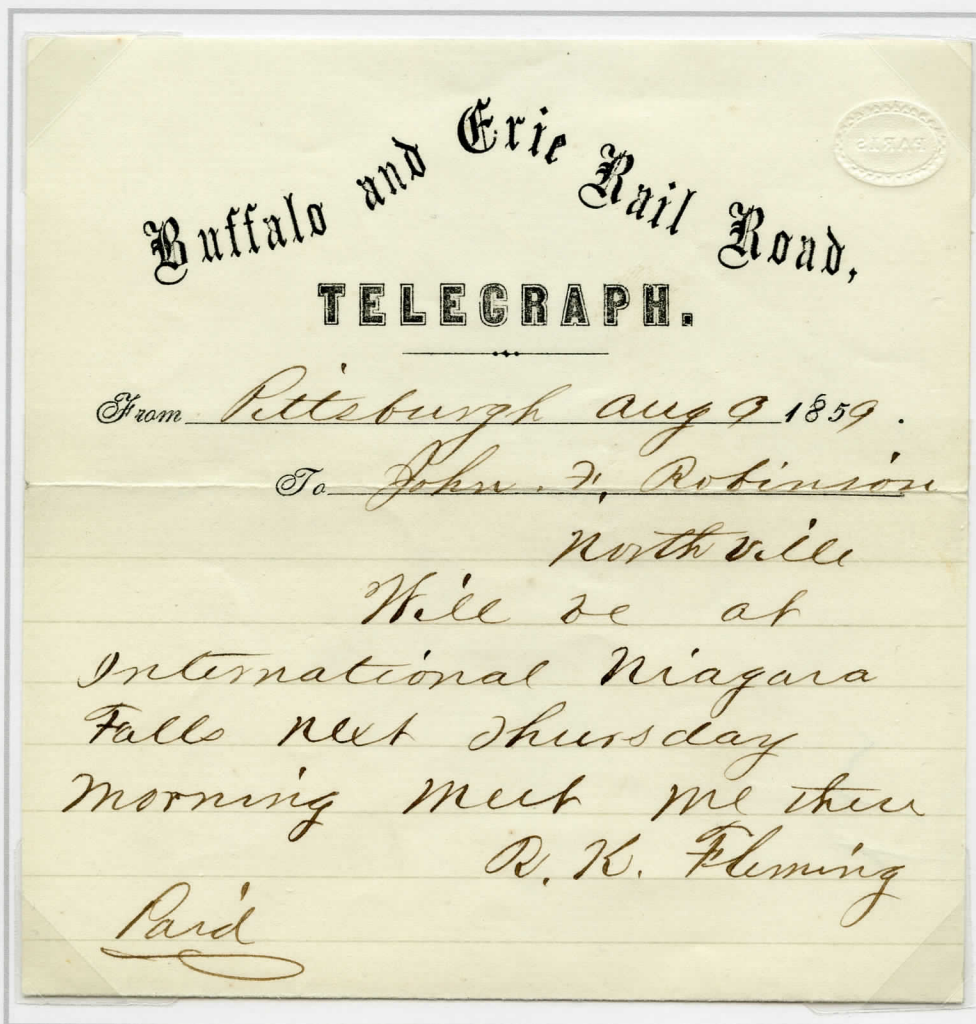 PARIS
Buffalo and Erie Rail Road,
TELEGRAPH.
From Pittsburgh Aug 9 1859.
To John F. Robinson
Northville
Will be at
International Niagara
Falls next Thursday
Morning Meet me there
R. K. Fleming
Paid